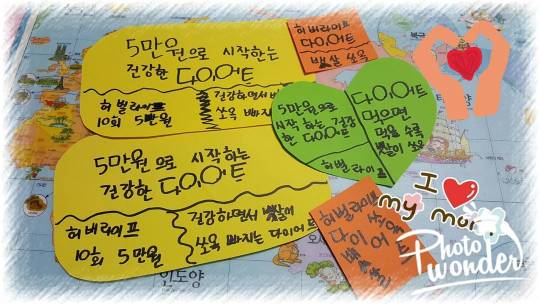 5만원으로 시작하는
건강한 다이어트
허벌라이프
10회 5만원
건강하면서
쏘옥 빠지
허버라이프
다이어트
뱃살 쏘옥
5만원으로
시작 하는 건강
한 다이어트
허벌라이프
다이어트
먹으면
먹을 수록
뱃살이 쏘옥
5만원으로 시작하는
건강한 다이어트
허버라이프
10회 5만원
건강하면서 뱃살이
쏘옥 빠지는 다이어트
허벌라이프
다이어트
I
my mom
Photo
wonder
인도양